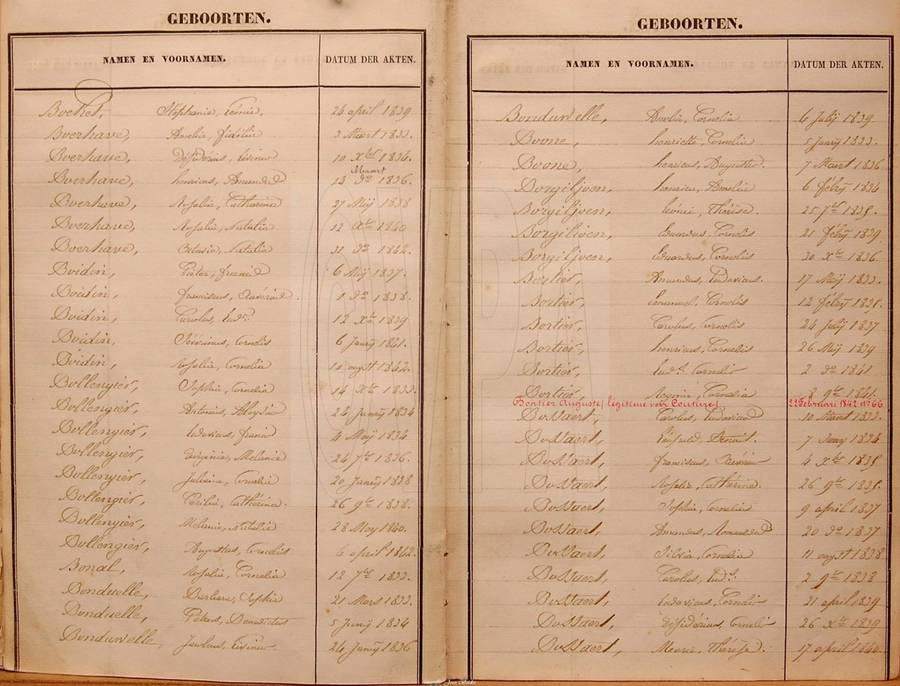 GEBOORTEN.
NAMEN EN VOORNAMEN. DATUM DER AKTEN.
Boethol, Stephanie, Leonie, 24 april 1839
Boerhave, Amelie, Julitie 3 Maart 1833.
Boerhave, Désiderius, Livinus 10 Xbr 1834.
Boerhave, henricus, Amandus 13 Maart 1836.
Boerhave, Rosalie, Catharina 27 Meij 1838
Boerhave, Rosalie, Natalia 12 Xbr 1840
Boerhave, Natalie 31 do 1842.
Boidin, Pieter, 6 Meij 1837.
Boidin, franciscus, 1 do 1838.
Boidin, Carolus, Ludo. 12 Xbr 1839
Boidin, Cornelis 6 Janrij 1841.
Boidin, Rosalie, Cornelia 10 augst 1842.
Bollengier, Sophie, Cornelia 14 Xbr 1833.
Bollengier, Antonius, Aloysius 24 Janrij 1834
Bollengier, Ludovicus, francis 4 Meij 1834
Bollengier, Virginie, Melanie 24 7br 1836.
Bollengier, Juliana, Cornelia 20 Janrij 1838
Bollengier, Cecilia, Catherina 26 9br 1838.
Bollengier, Melanie, Natalia 28 Meij 1840.
Bollengier, Augustus, Cornelis 6 april 1842.
Bonal, Rosalie, Cornelia 12 7br 1833.
Bonduelle, Barbara, Sophie 21 Mars 1833.
Bonduelle, Petrus, Benedictus 5 Junij 1834
Bonduwelle, Livinus 24 Janrij 1836
GEBOORTEN.
NAMEN EN VOORNAMEN. DATUM DER AKTEN.
Bonduwelle, Amelie, Cornelia 6 Julij 1839.
Boone, henriette, Cornelia 5 Janrij 1833.
Boone, henricus, Augustus 7 Maart 1836
Borgiljoen, henrica, Amelia 6 febrij 1834
Borgiljoen, Leonie, Thérèse. 25 7br 1835.
Borgiljoen, Eduardus, Cornelis 21 febrij 1839.
Borgiljoen, Eduardus, Cornelis 30 Xbr 1836.
Bortier, Amandus, Ludovicus. 17 Meij 1833.
Bortier, Emanuel, Cornelis 12 febrij 1835.
Bortier, Carolus, Cornelis 24 Julij 1837
Bortier, henricus, Cornelis 26 Meij 1839
Bortier, Ludo. Cornelis 2 do 1841
Bortier, Cornelia 9br 1841.
Bortier Auguste, legitime voor Cautierel 22 Februari 1842 No 66.
Bossaert, Carolus, Ludovicus 10 Maart 1833.
Bossaert, Benoit. 7 Janrij 1834
Bossaert, franciscus, Xavier 4 Xbr 1835
Bossaert, Rosalie, Catherina. 26 9br 1835.
Bossaert, Sophie, Cornelia 9 april 1837
Bossaert, Amandus, 20 do 1837.
Bossaert, Silvia, Cornelia 11 augst 1838
Bossaert, Carolus, Ludo. 2 9br 1838
Bossaert, Ludovicus, Cornelis 21 april 1839
Bossaert, Désiderius, Cornelis 26 Xbr 1839
Bossaert, Marie, Thérèse. 17 april 1840.